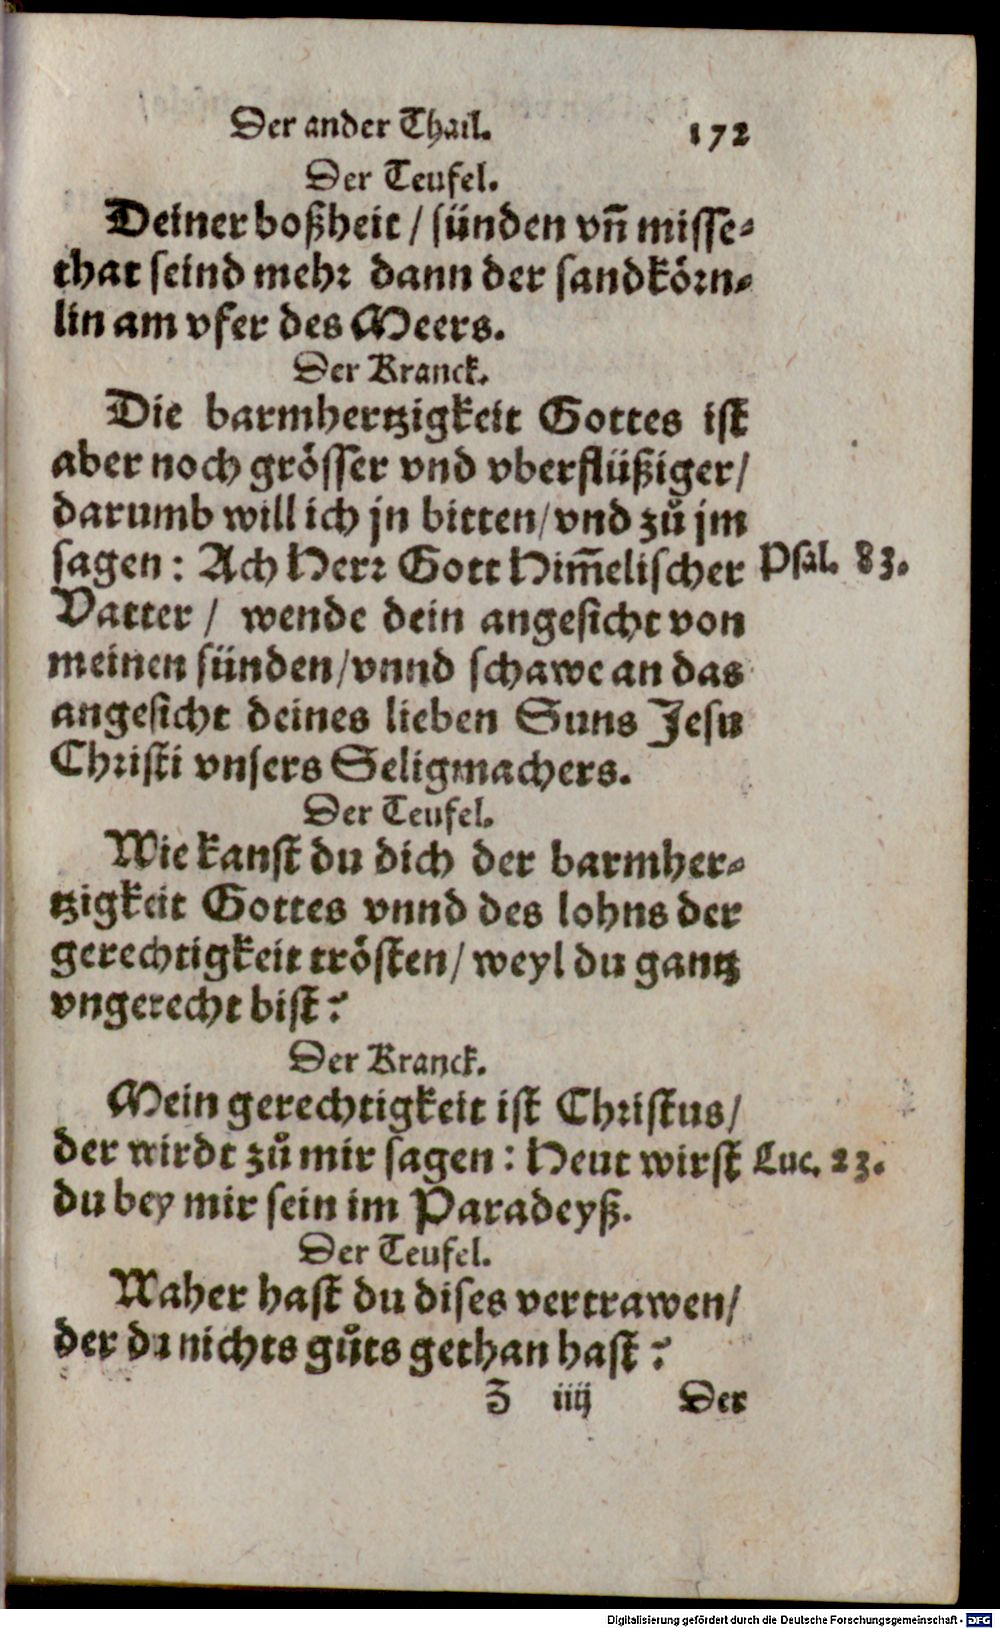 Der ander Thail. 172
Der Teufel.
Deiner boßheit / sünden vn̄ misse⸗
that seind mehr dann der sandkörn⸗
lin am vfer des Meers.
Der Kranck.
Die barmhertzigkeit Gottes ist
aber noch grösser vnd vberflüßiger/
darumb will ich jn bitten/vnd zů jm
sagen: Ach Herr Gott Him̄elischer Psal. 83.
Vatter / wende dein angesicht von
meinen sünden/vnnd schawe an das
angesicht deines lieben Suns Jesu
Christi vnsers Seligmachers.
Der Teufel.
Wie kanst du dich der barmher⸗
tzigkeit Gottes vnnd des lohns der
gerechtigkeit trösten/weyl du gantz
vngerecht bist?
Der Kranck.
Mein gerechtigkeit ist Christus/
der wirdt zů mir sagen: Heut wirst Luc. 23.
du bey mir sein im Paradeyß.
Der Teufel.
Waher hast du dises vertrawen/
der du nichts gůts gethan hast?
Z iiij Der
Digitalisierung gefördert durch die Deutsche Forschungsgemeinschaft - DFG